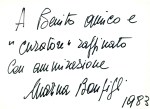 A Benito amico e
"curatore" raffinato
con ammirazione
Marina Bonfigli
1983